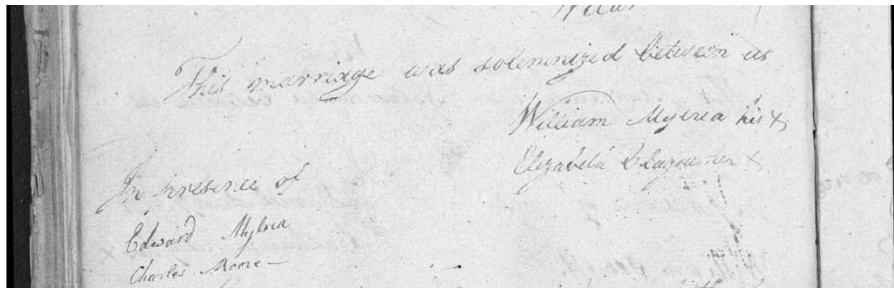 This marriage was solemnized between us
William Mylrea his x
Elizabeth Clague her x
In presence of
Edward Mylrea
Charles Moore —